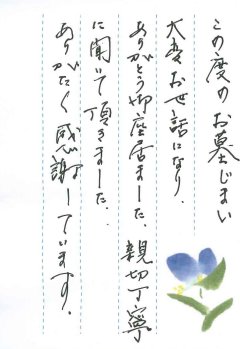 この度のお墓じまい
大変お世話になり、
ありがとう御座居ました。親切丁寧
に聞いて頂きました。
ありがたく感謝しています。